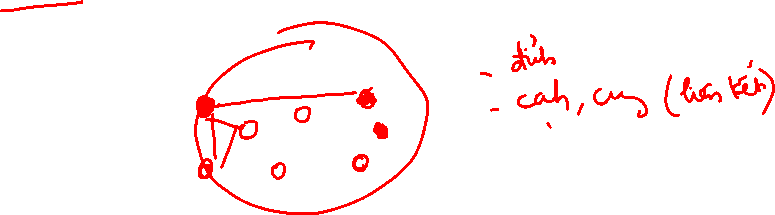 - đỉnh
- cạnh, cung (liên kết)